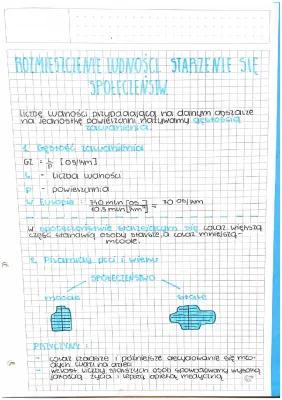 ROZMIESZCZENIE LUDNOŚCI. STARZENIE SIĘ
SPOŁECZEŃSTW.
Liczbę ludności przypadającą na danym obszarze
na jednostkę powierzchni nazywamy gęstością
zaludnienia.
1. Gęstość zaludnienia
GZ = L/P [os/km]
L - liczba ludności
P - powierzchnia
W Europie = 740 mln [os.] / 10,5 mln [km] = 70 os/km
W społeczeństwie starzejącym się coraz większą
część stanowią osoby starsze, a coraz mniejszą-
młode.
2. Piramidy płci i wieku
SPOŁECZEŃSTWO
młode stare
PRZYCZYNY:
- coraz rzadsze i późniejsze decydowanie się mło-
dych ludzi na dzieci
- wzrost liczby starszych osób spowodowany wysoką
jakością życia i lepszą opieką medyczną